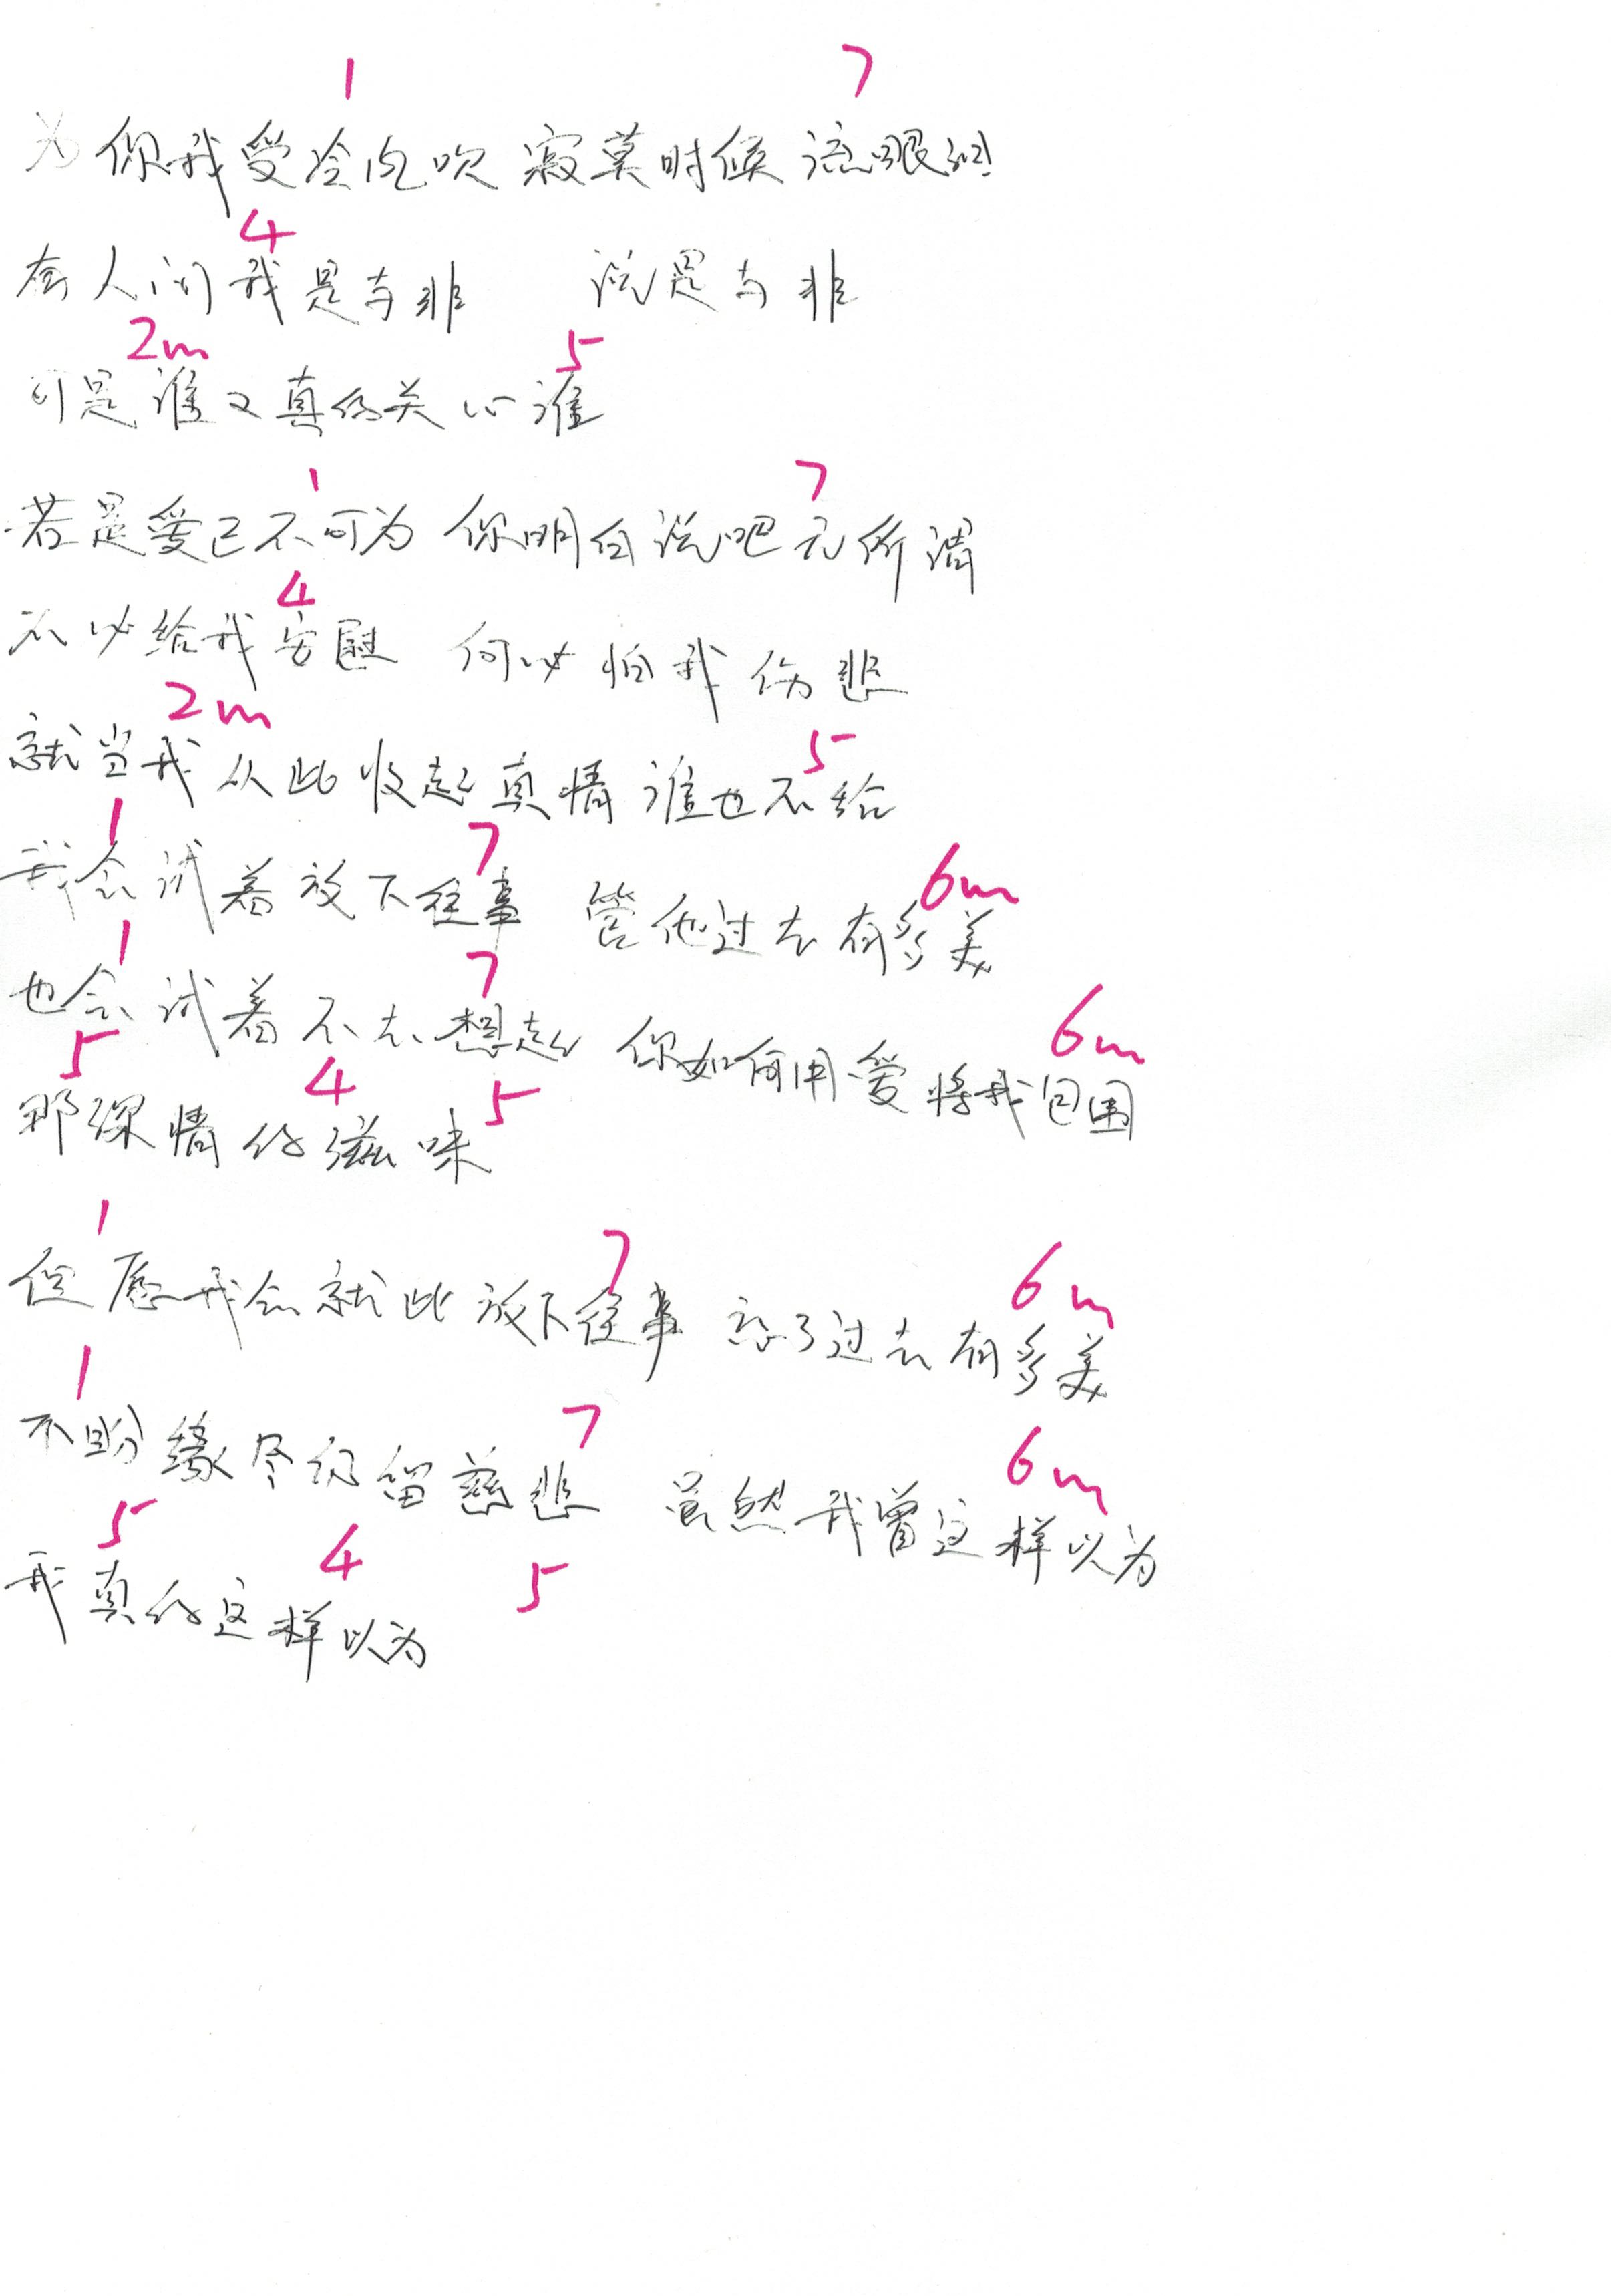 1 7
为你我受冷风吹 寂寞时候流眼泪
4
有人问我是与非 说是与非
2m 5
可是谁又真的关心谁
1 7
若是爱已不可为 你明白说吧无所谓
4
不必给我安慰 何必怕我伤悲
2m 5
就当我从此收起真情谁也不给
1 7 6m
我会试着放下往事 管他过去有多美
1 7 6m
也会试着不去想起 你如何用爱将我包围
5 4 5
那深情的滋味
1 7 6m
但愿我会就此放下往事 忘了过去有多美
1 7 6m
不盼缘尽仍留慈悲 虽然我曾这样以为
5 4 5
我真的这样以为